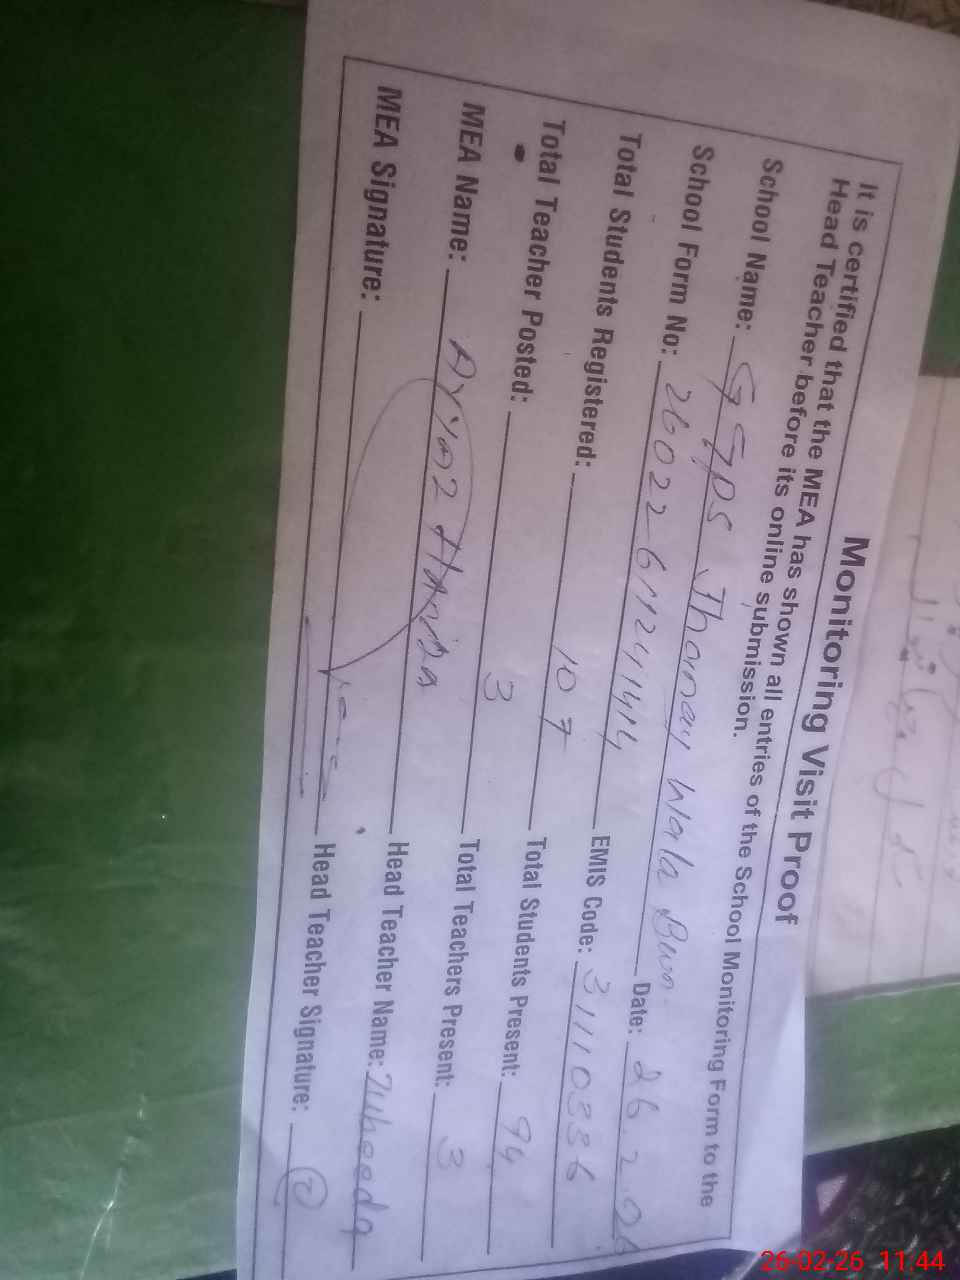 Monitoring Visit Proof
It is certified that the MEA has shown all entries of the School Monitoring Form to the
Head Teacher before its online submission.
School Name: GGPS Jhoray Wala Bwn. Date: 26.2.26
School Form No: 26022611241414 EMIS Code: 31110336
Total Students Registered: 107 Total Students Present: 94
Total Teacher Posted: 3 Total Teachers Present: 3
MEA Name: Head Teacher Name: Zubeeda
MEA Signature: Head Teacher Signature:
26-02-26 11:44